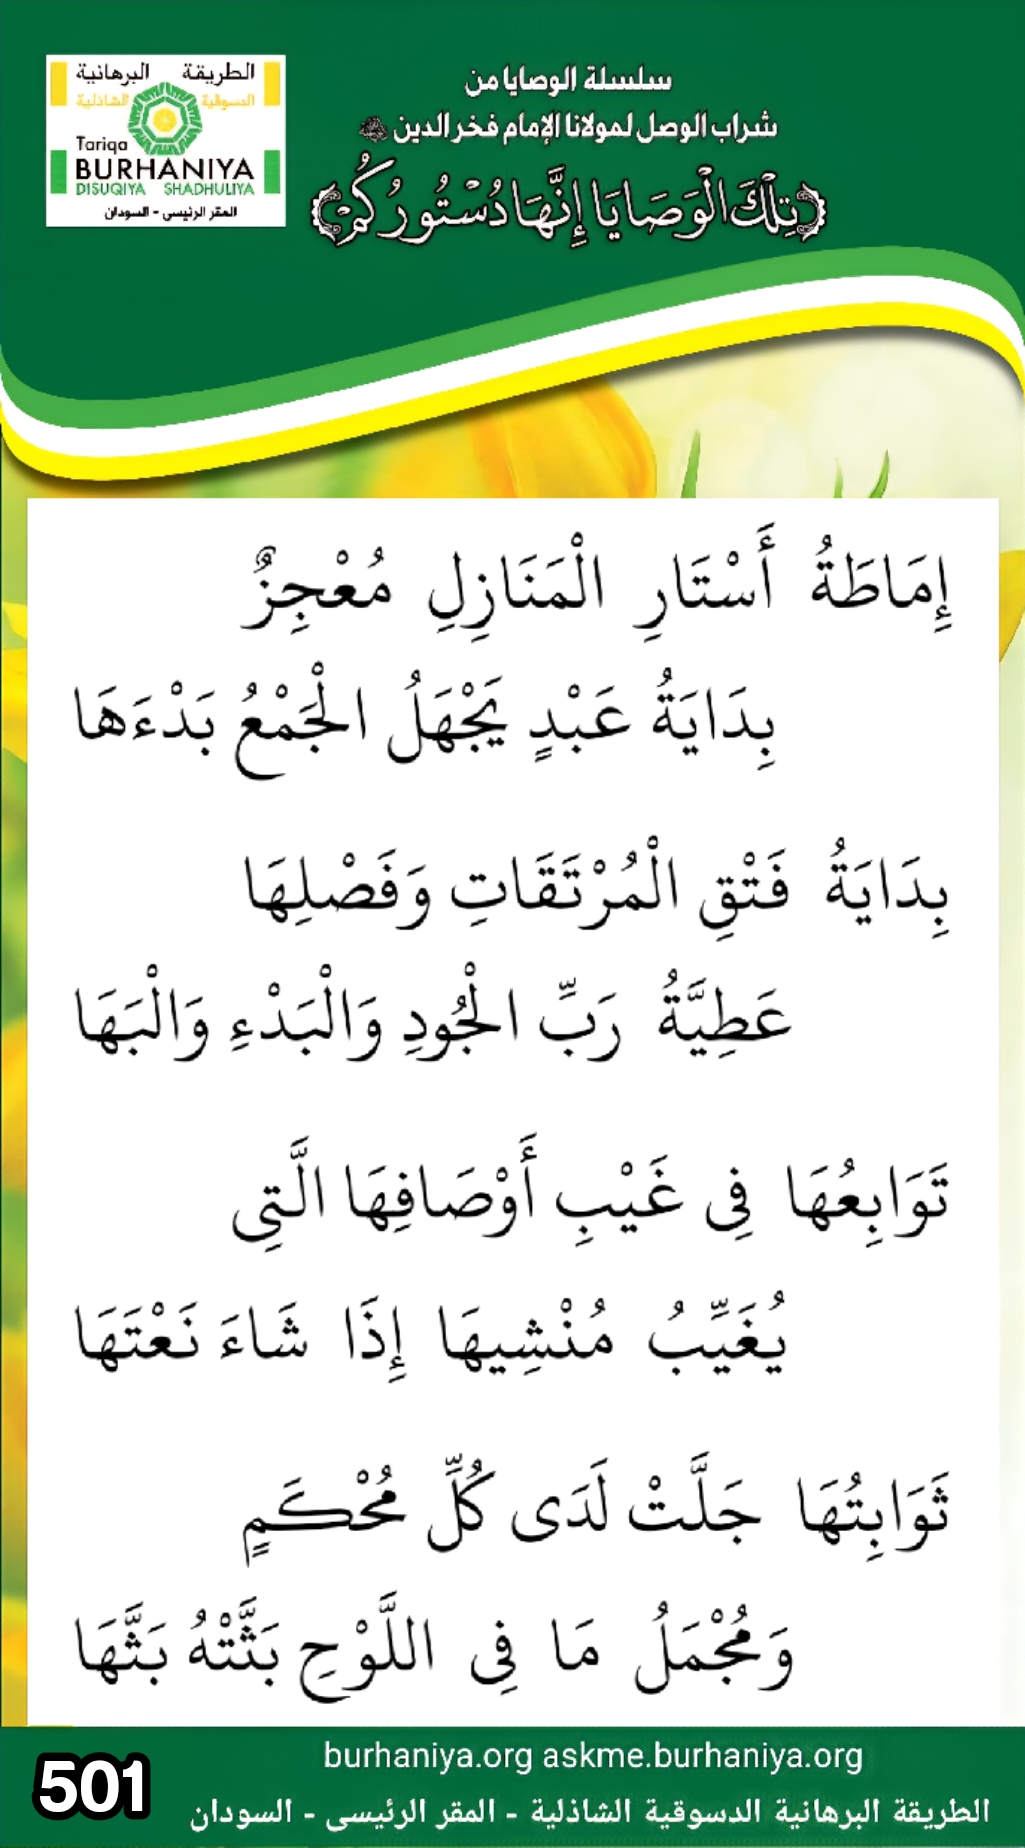 الطريقة البرهانية
الدسوقية الشاذلية
Tariqa
BURHANIYA
DISUQIYA SHADHULIYA
المقر الرئيسى - السودان
سلسلة الوصايا من
شراب الوصل لمولانا الإمام فخر الدين
﴿تِلْكَ الْوَصَايَا إِنَّهَا دُسْتُورُكُمْ﴾
إِمَاطَةُ أَسْتَارِ الْمَنَازِلِ مُعْجِزٌ
بِدَايَةُ عَبْدٍ يَجْهَلُ الْجَمْعُ بَدْءَهَا
بِدَايَةُ فَتْقِ الْمُرْتَقَاتِ وَفَصْلِهَا
عَطِيَّةُ رَبِّ الْجُودِ وَالْبَدْءِ وَالْبَهَا
تَوَابِعُهَا فِى غَيْبِ أَوْصَافِهَا الَّتِى
يُغَيِّبُ مُنْشِيهَا إِذَا شَاءَ نَعْتَهَا
ثَوَابِتُهَا جَلَّتْ لَدَى كُلِّ مُحْكَمٍ
وَمُجْمَلُ مَا فِى اللَّوْحِ بَثَّتْهُ بَثَّهَا
burhaniya.org askme.burhaniya.org
501
الطريقة البرهانية الدسوقية الشاذلية - المقر الرئيسى - السودان